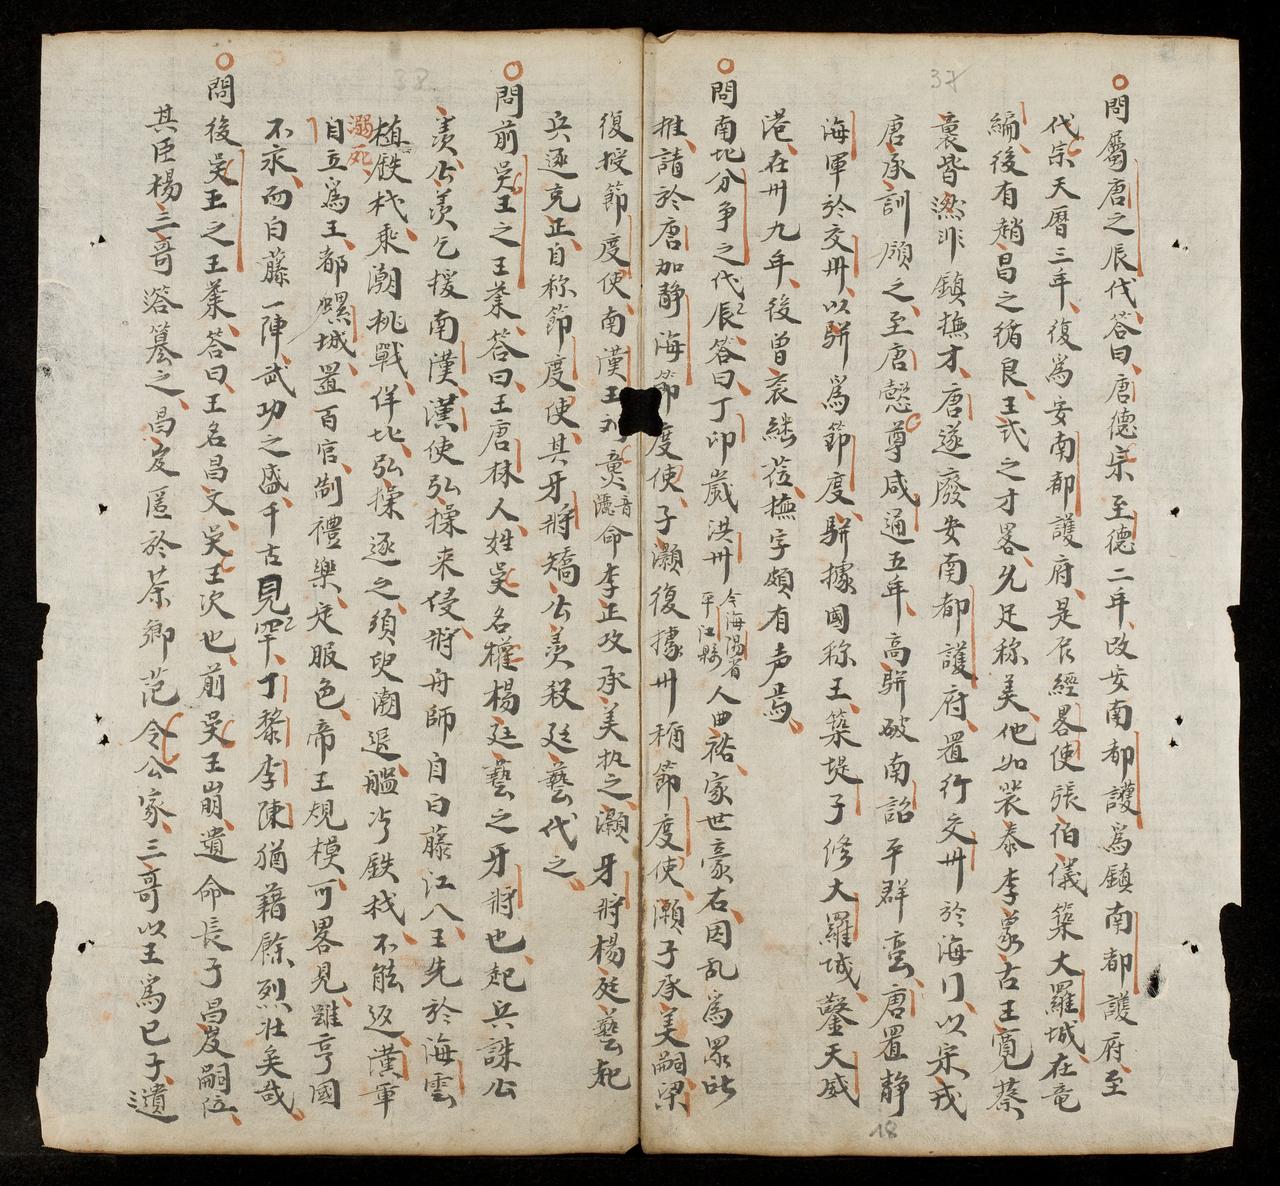 問屬唐之辰代答曰唐德宗至德二年改安南都護爲鎮南都護府至
代宗天曆三年復爲安南都護府是辰經畧使張伯儀築大羅城在竜
編後有趙昌之循良王式之才畧允足称美他如裴泰李象古王寬蔡
襲皆非鎮撫才唐遂廢安南都護府置行交州於海门以宗戎
唐承訓領之至唐懿尊咸通五年高駢破南詔平群蛮唐置静
海軍於交州以駢爲節度駢據國称王築堤子修大羅城鑿天威
港在州九年後曾袞継莅撫字頗有声焉
問南北分争之代辰答曰丁卯歲洪州今海陽省平江縣人曲裕家世豪右因乱爲眾所
推請於唐加静海節度使子灝復據州稱節度使灝子承美嗣梁
復授節度使南漢王刘䶮音讔命李正攻承美执之灝牙將楊廷藝起
兵逐克正自称節度使其牙將矯公羨殺廷藝代之
問前吳王之王業答曰王唐林人姓吳名權楊廷藝之牙將也起兵誅公
羨公羨乞援南漢漢使弘操来侵將舟師自白藤江入王先於海雲
植鉄杙乘潮挑戰佯北弘操逐之須臾潮退艦冎鉄杙不能返漢軍
溺死
自立爲王都螺城置百官制禮樂定服色帝王規模可畧見雖亨國
不永而白藤一陣武功之盛千古見罕丁黎李陳猶藉餘烈壮矣哉
問後吳王之王業答曰王名昌文吳王次也前吳王崩遺命長子昌岌嗣位
其臣楊三哥簒之昌岌匿於茶鄉范令公家三哥以王爲已子遺
37
38
18